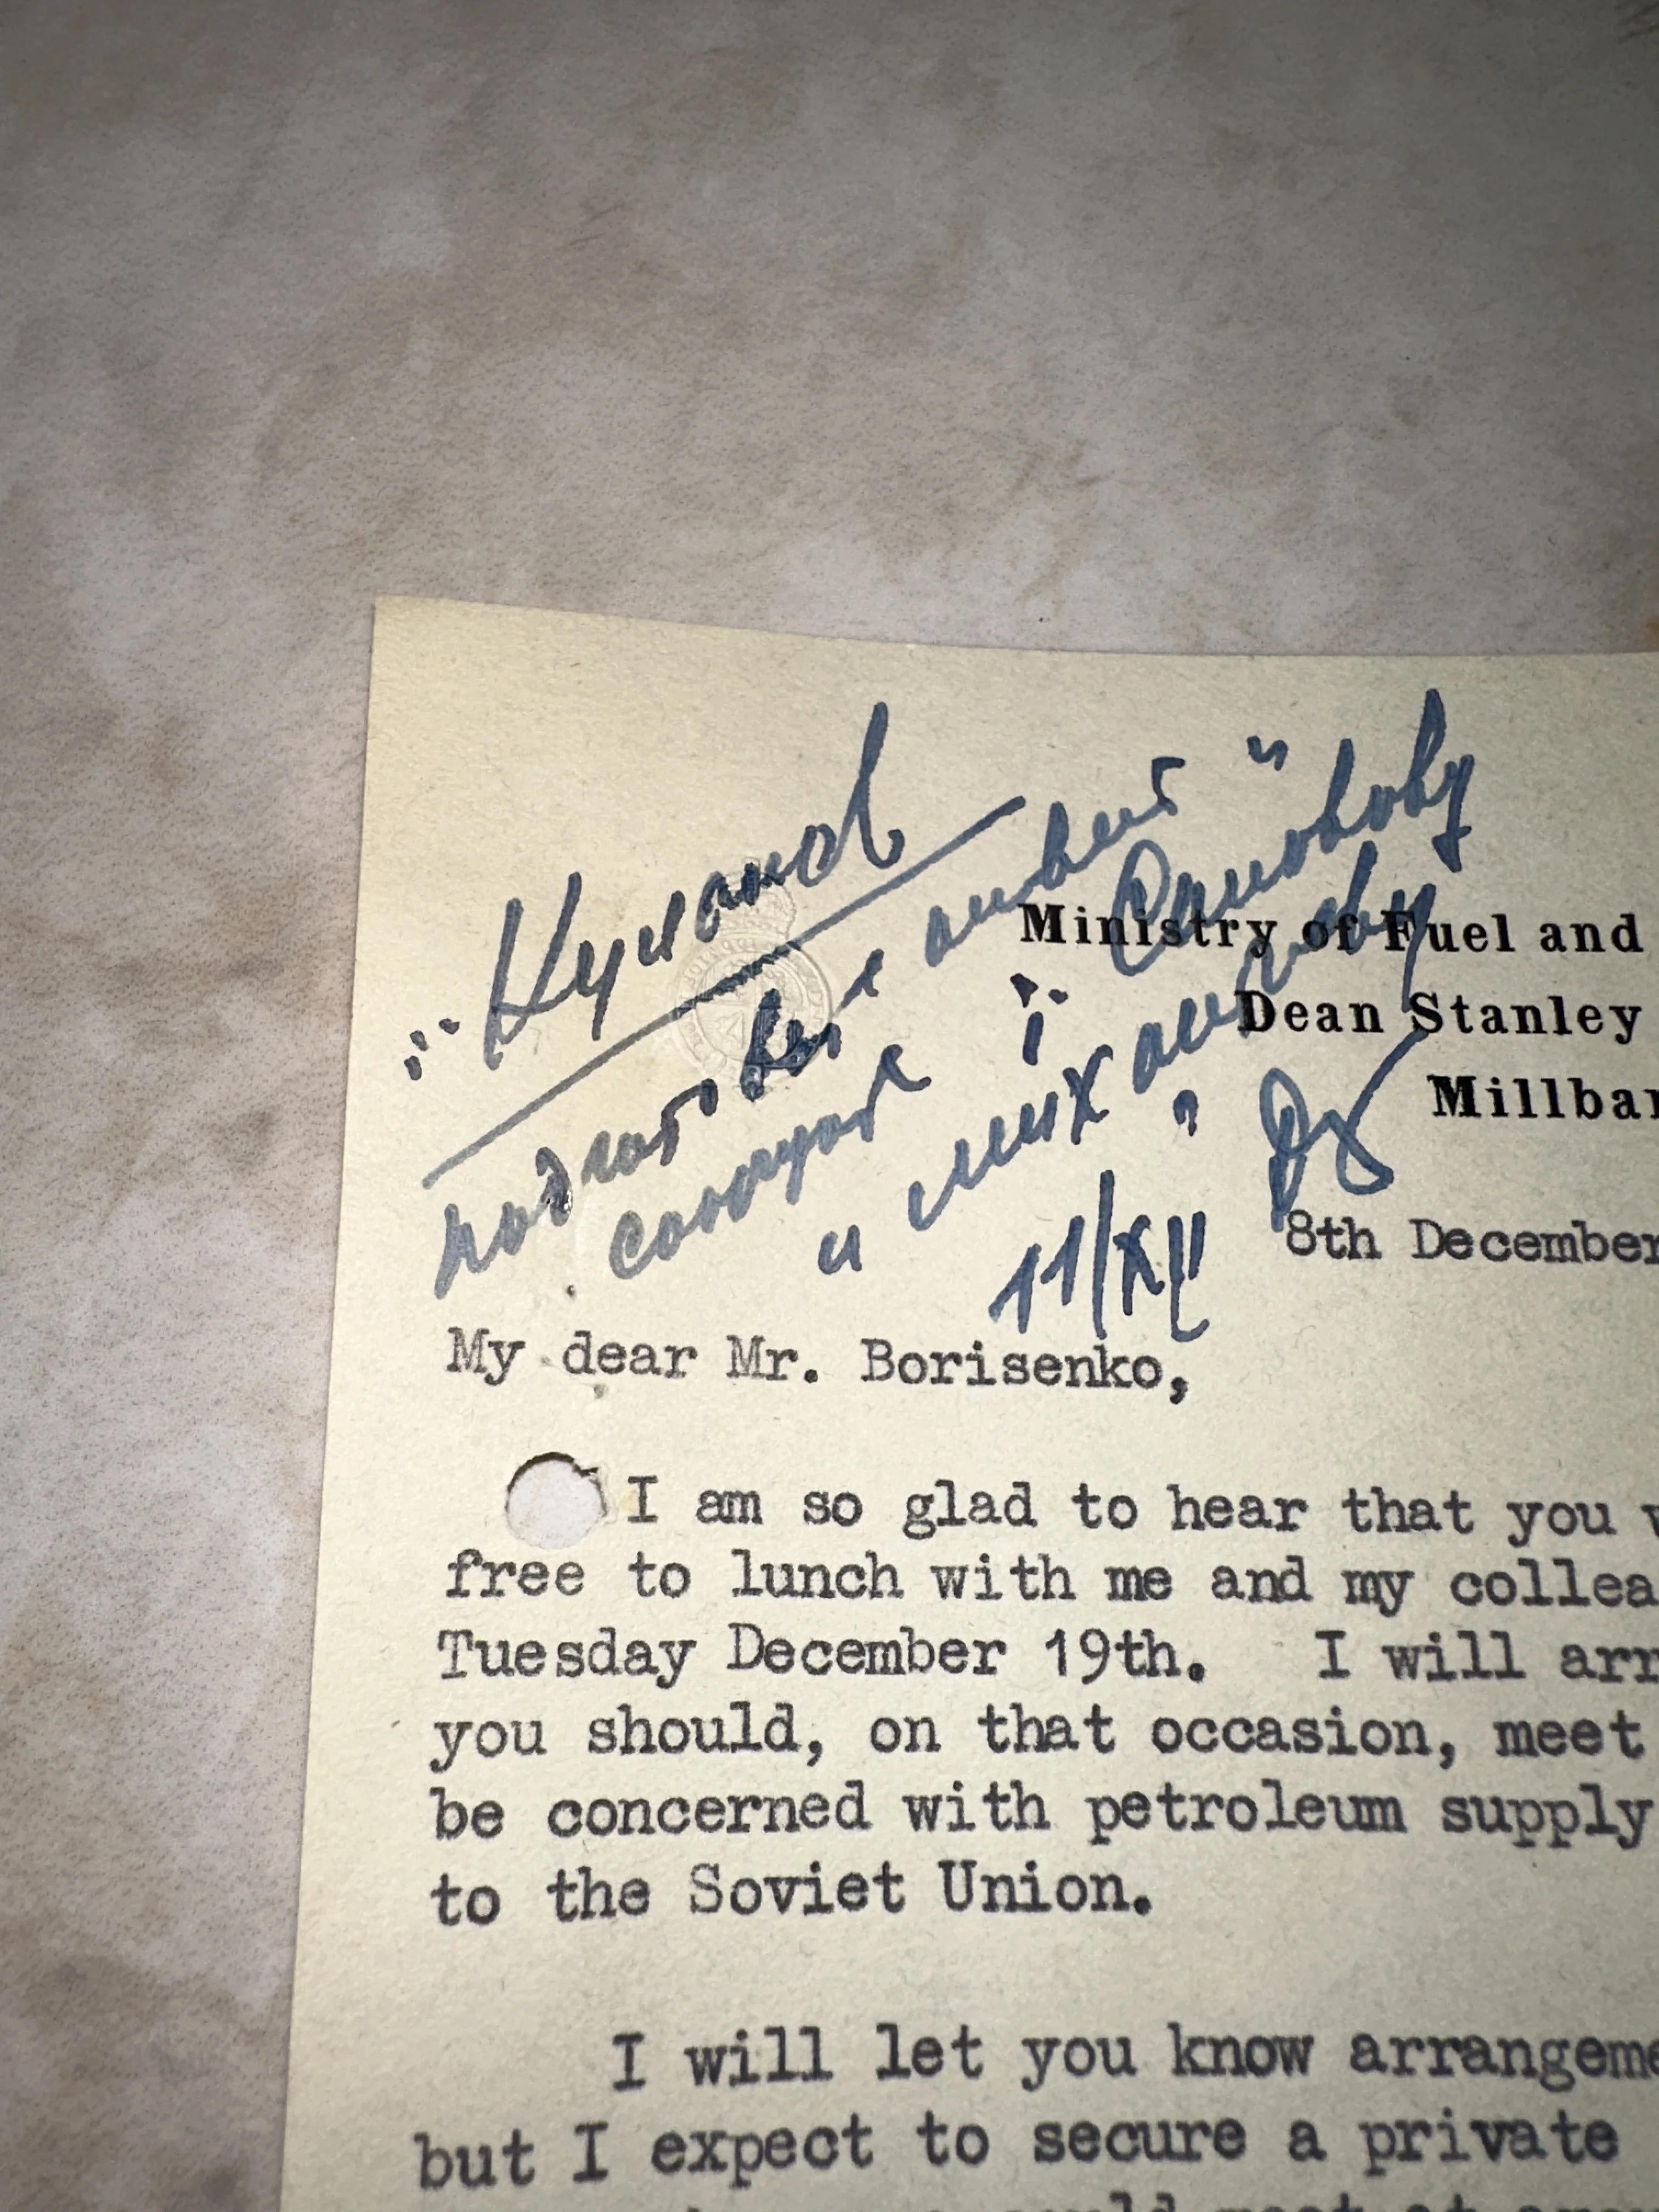 подготовит ответ
и
11/XII
Ministry of Fuel and
Dean Stanley
Millba
8th December
My dear Mr. Borisenko,
I am so glad to hear that you
free to lunch with me and my collea
Tuesday December 19th. I will arr
you should, on that occasion, meet
be concerned with petroleum supply
to the Soviet Union.
I will let you know arrangeme
but I expect to secure a private